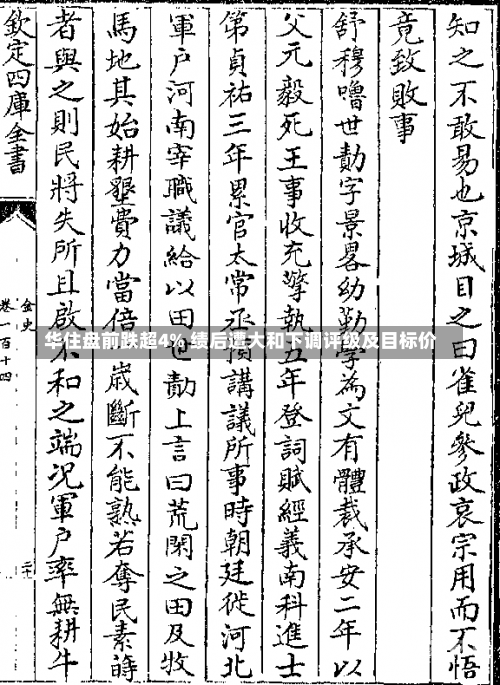 知之不敢易也京城目之曰雀兒參政哀宗用而不悟
竟致敗事
舒穆嚕世勣字景畧幼勤學為文有體裁承安二年以
父元毅死王事收充擎執五年登詞賦經義兩科進士
第貞祐三年累官太常丞預講議所事時朝廷徙河北
軍戶河南宰職議給以田世勣上言曰荒閑之田及牧
馬地其始耕墾費力當倍歲斷不能熟若奪民素蒔
者與之則民將失所且啟不和之端况軍戶率無耕牛
欽定四庫全書
金史
卷一百十四
华住盘前跌超4% 绩后遭大和下调评级及目标价